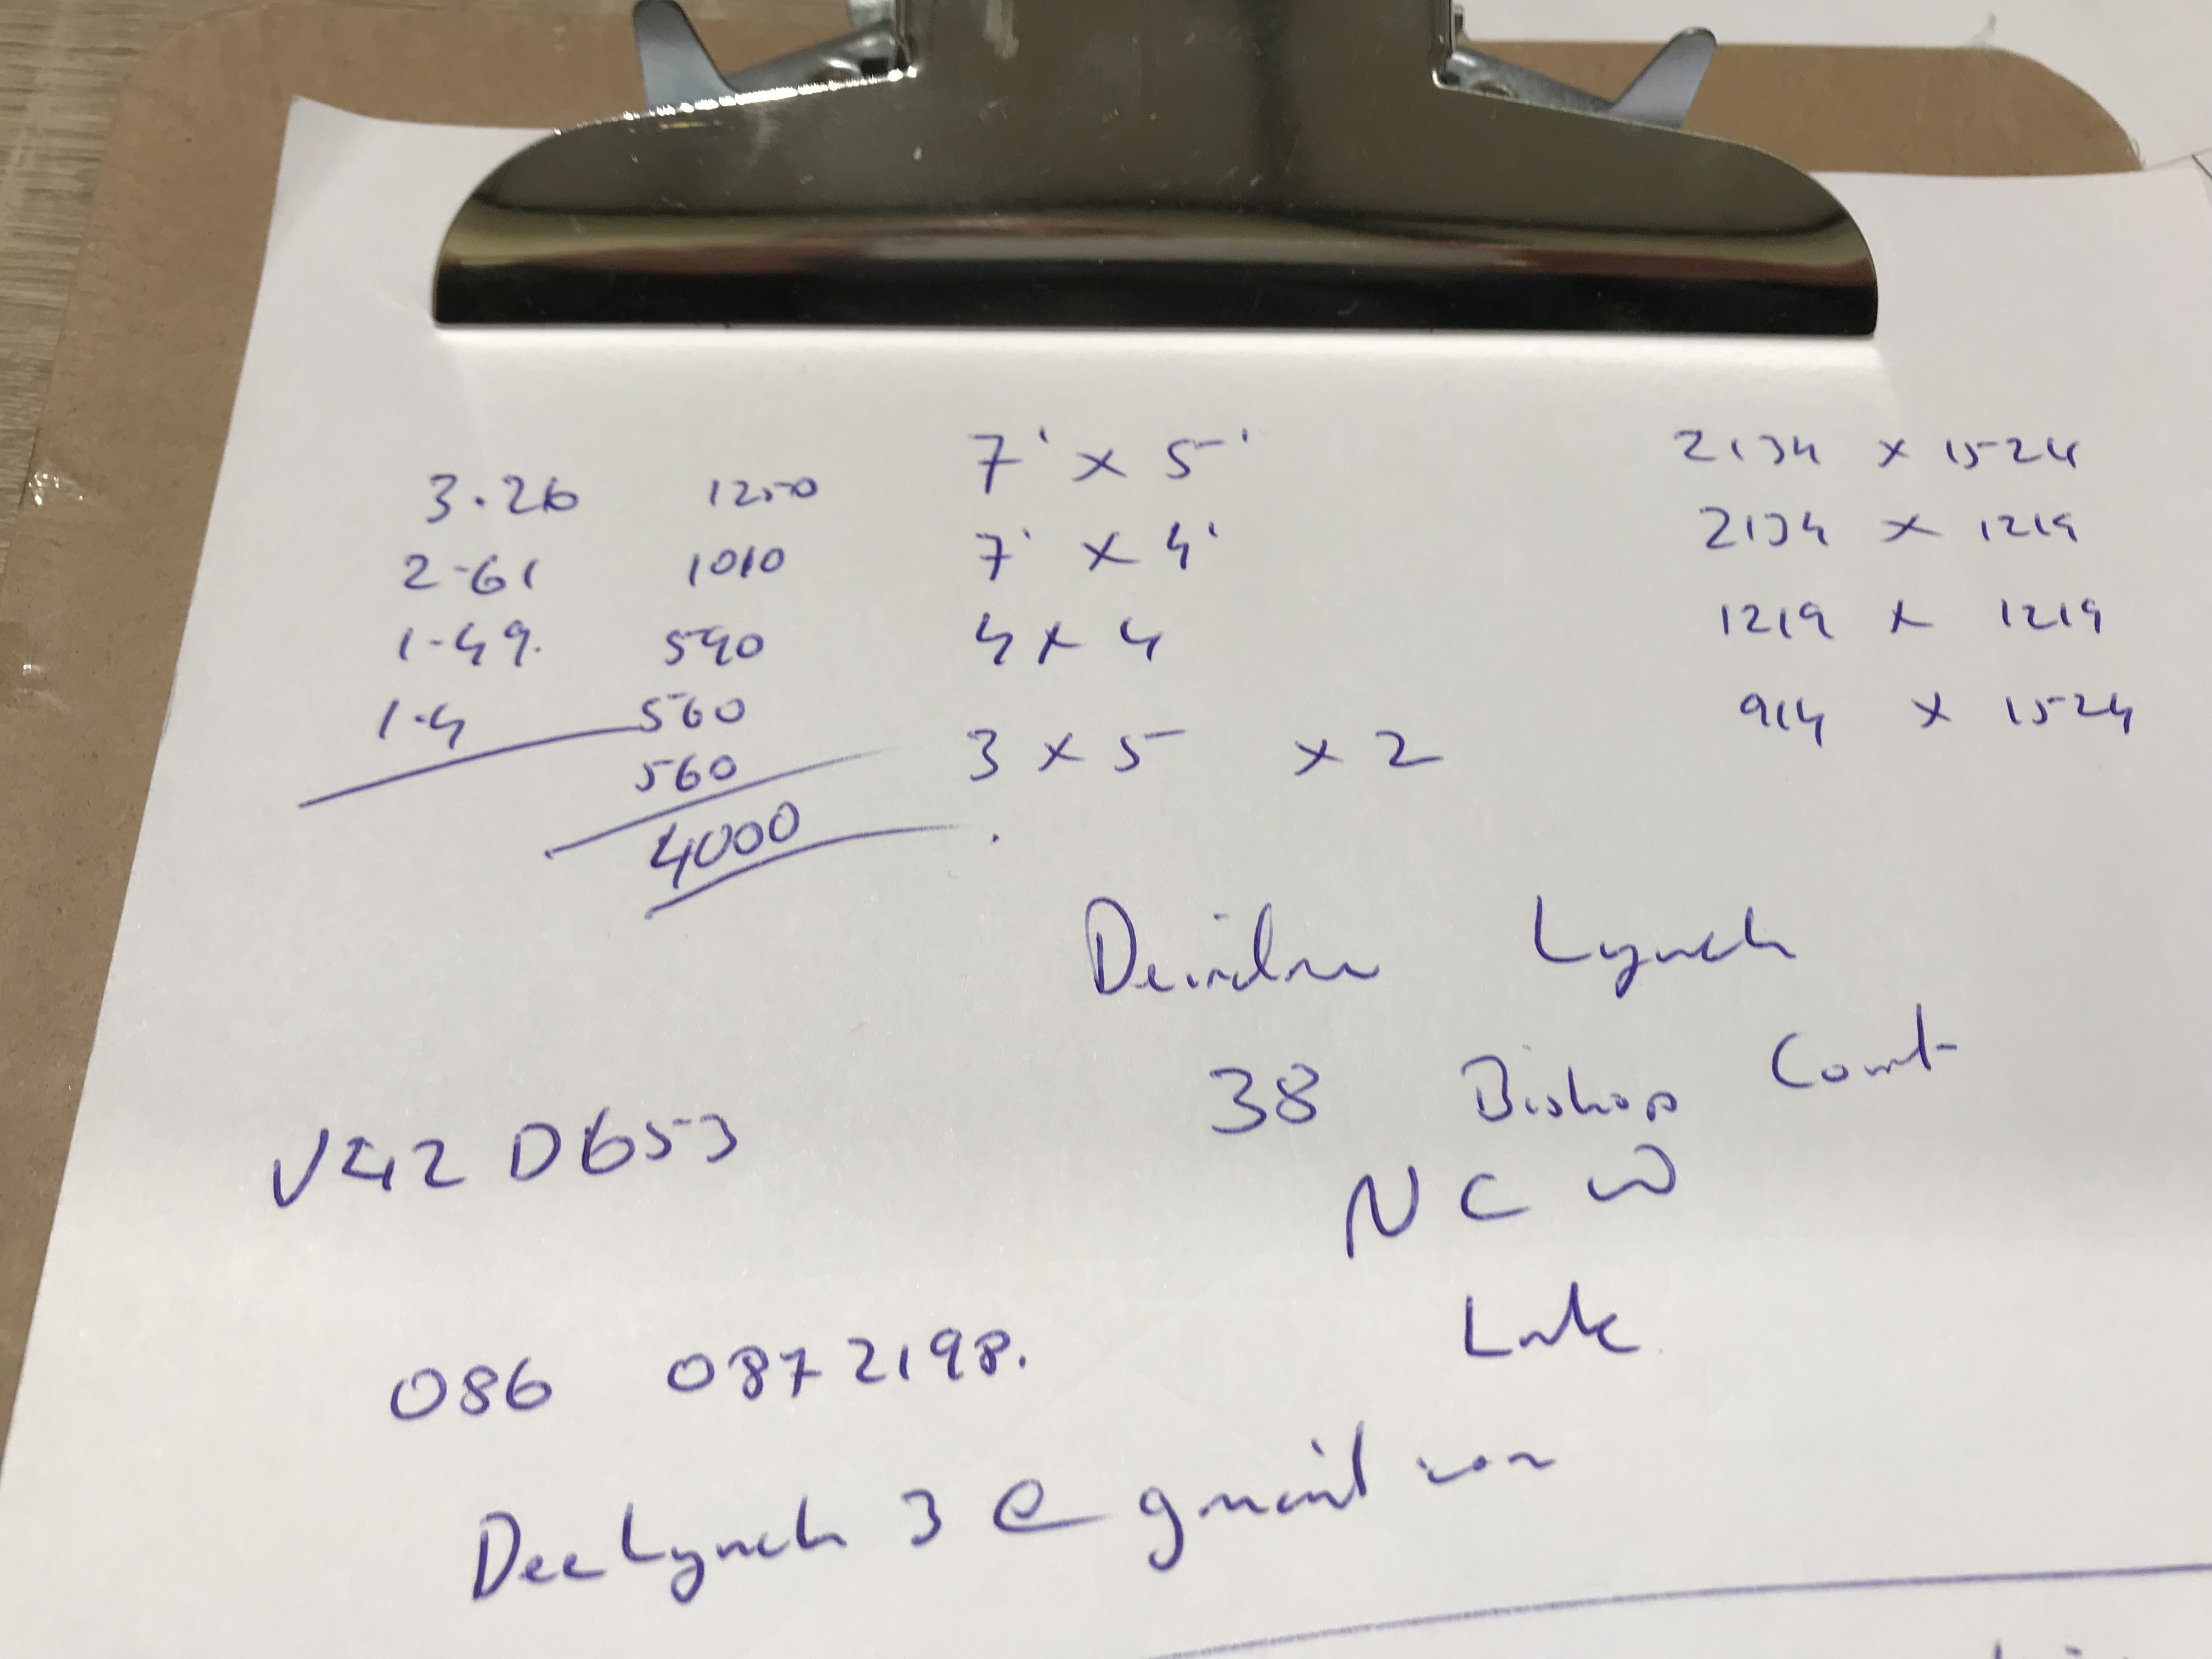 3.26 1250 7' x 5' 2134 x 1524
2.61 1010 7' x 4' 2134 x 1219
1.49. 590 4 x 4 1219 x 1219
1.4 560 914 x 1524
560 3 x 5 x 2
4000
Deirdre Lynch
38 Bishop Court
V42 D653 N C W
086 0872198.
DeeLynch 3 @ gmail com